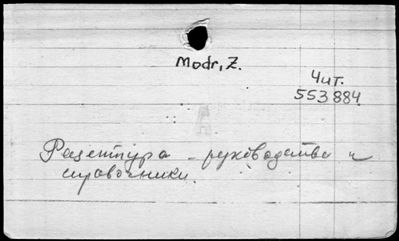 Modr, Z.
Чит.
553884
Рецептура - руководства и
справочники.